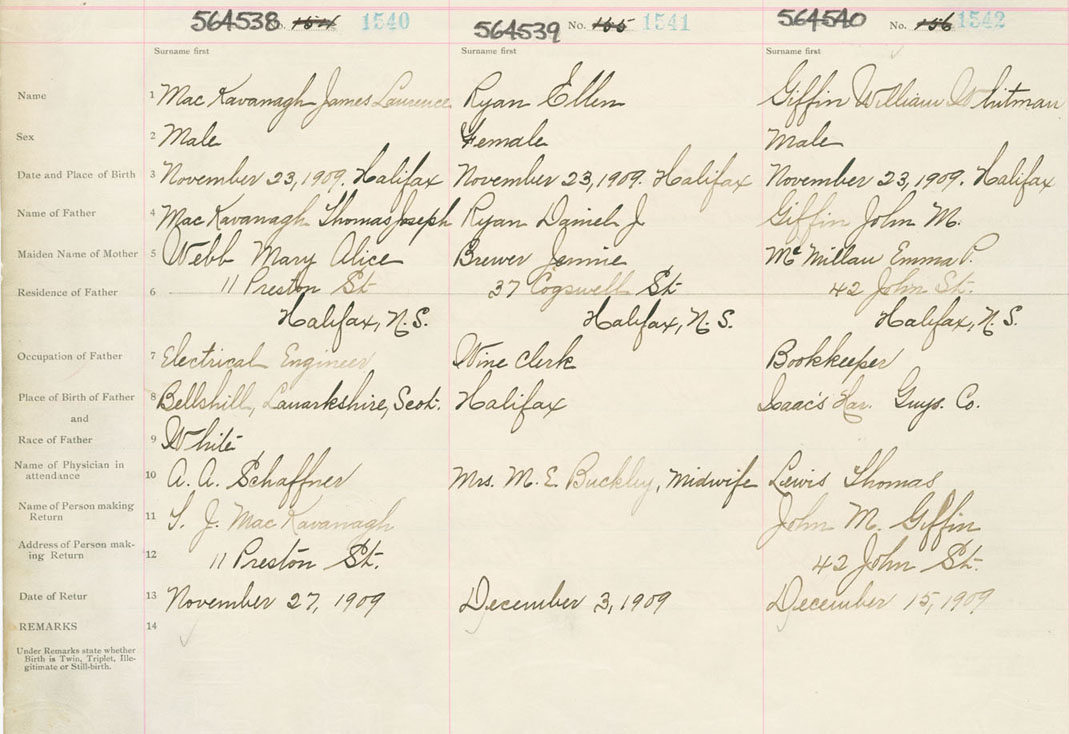 564538 No. 154 1540 564539 No. 155 1541 564540 No. 156 1542
Surname first Surname first Surname first
Name 1 MacKavanagh James Laurence Ryan Ellen Giffin William Whitman
Sex 2 Male Female Male
Date and Place of Birth 3 November 23, 1909. Halifax November 23, 1909. Halifax November 23, 1909. Halifax
Name of Father 4 MacKavanagh Thomas Joseph Ryan Daniel J Giffin John M.
Maiden Name of Mother 5 Webb Mary Alice Brewer Jennie McMillan Emma P.
Residence of Father 6 11 Preston St 37 Cogswell St 42 John St.
Halifax, N.S. Halifax, N.S. Halifax, N.S.
Occupation of Father 7 Electrical Engineer Wine Clerk Bookkeeper
Place of Birth of Father 8 Bellshill, Lanarkshire, Scot. Halifax Isaac's Har. Guys. Co.
and
Race of Father 9 White
Name of Physician in
attendance 10 A. A. Schaffner Mrs. M. E. Buckley, Midwife Lewis Thomas
Name of Person making
Return 11 T. J. MacKavanagh John M. Giffin
Address of Person mak-
ing Return 12 11 Preston St. 42 John St.
Date of Retur 13 November 27, 1909 December 3, 1909 December 15, 1909
REMARKS 14
Under Remarks state whether
Birth is Twin, Triplet, Ille-
gitimate or Still-birth.